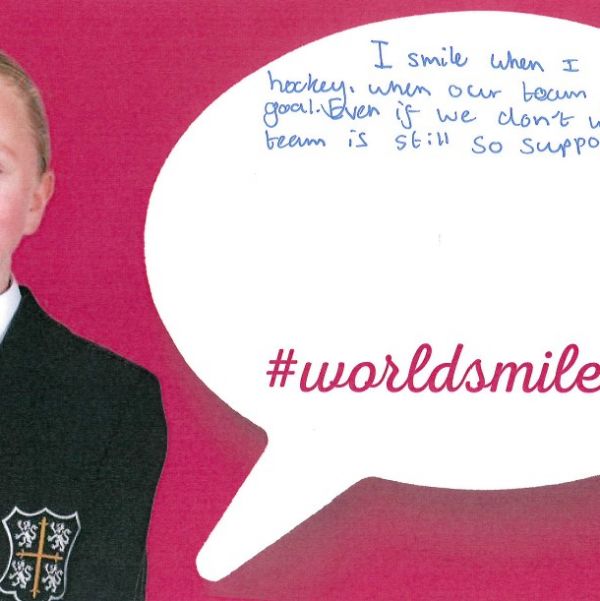 I smile when I
hockey. when our team
goal. Even if we don't w
team is still so suppo
#worldsmile